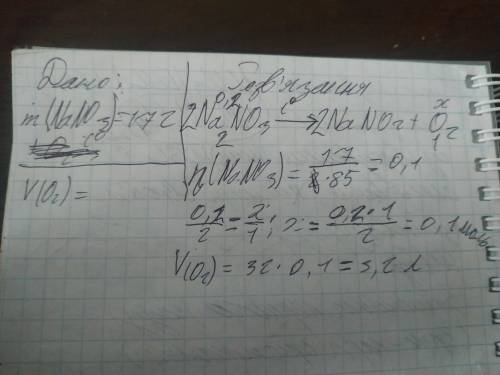 Дано:
m(NaNO3)=17г
V(O2)=
Розв'язання
0,2 x
2NaNO3 t°→ 2NaNO2 + O2
2 1
n(NaNO3) = 17/85 = 0,1
0,2/2 = x/1; x = 0,2·1/2 = 0,1 моль
V(O2) = 32·0,1 = 3,2 л